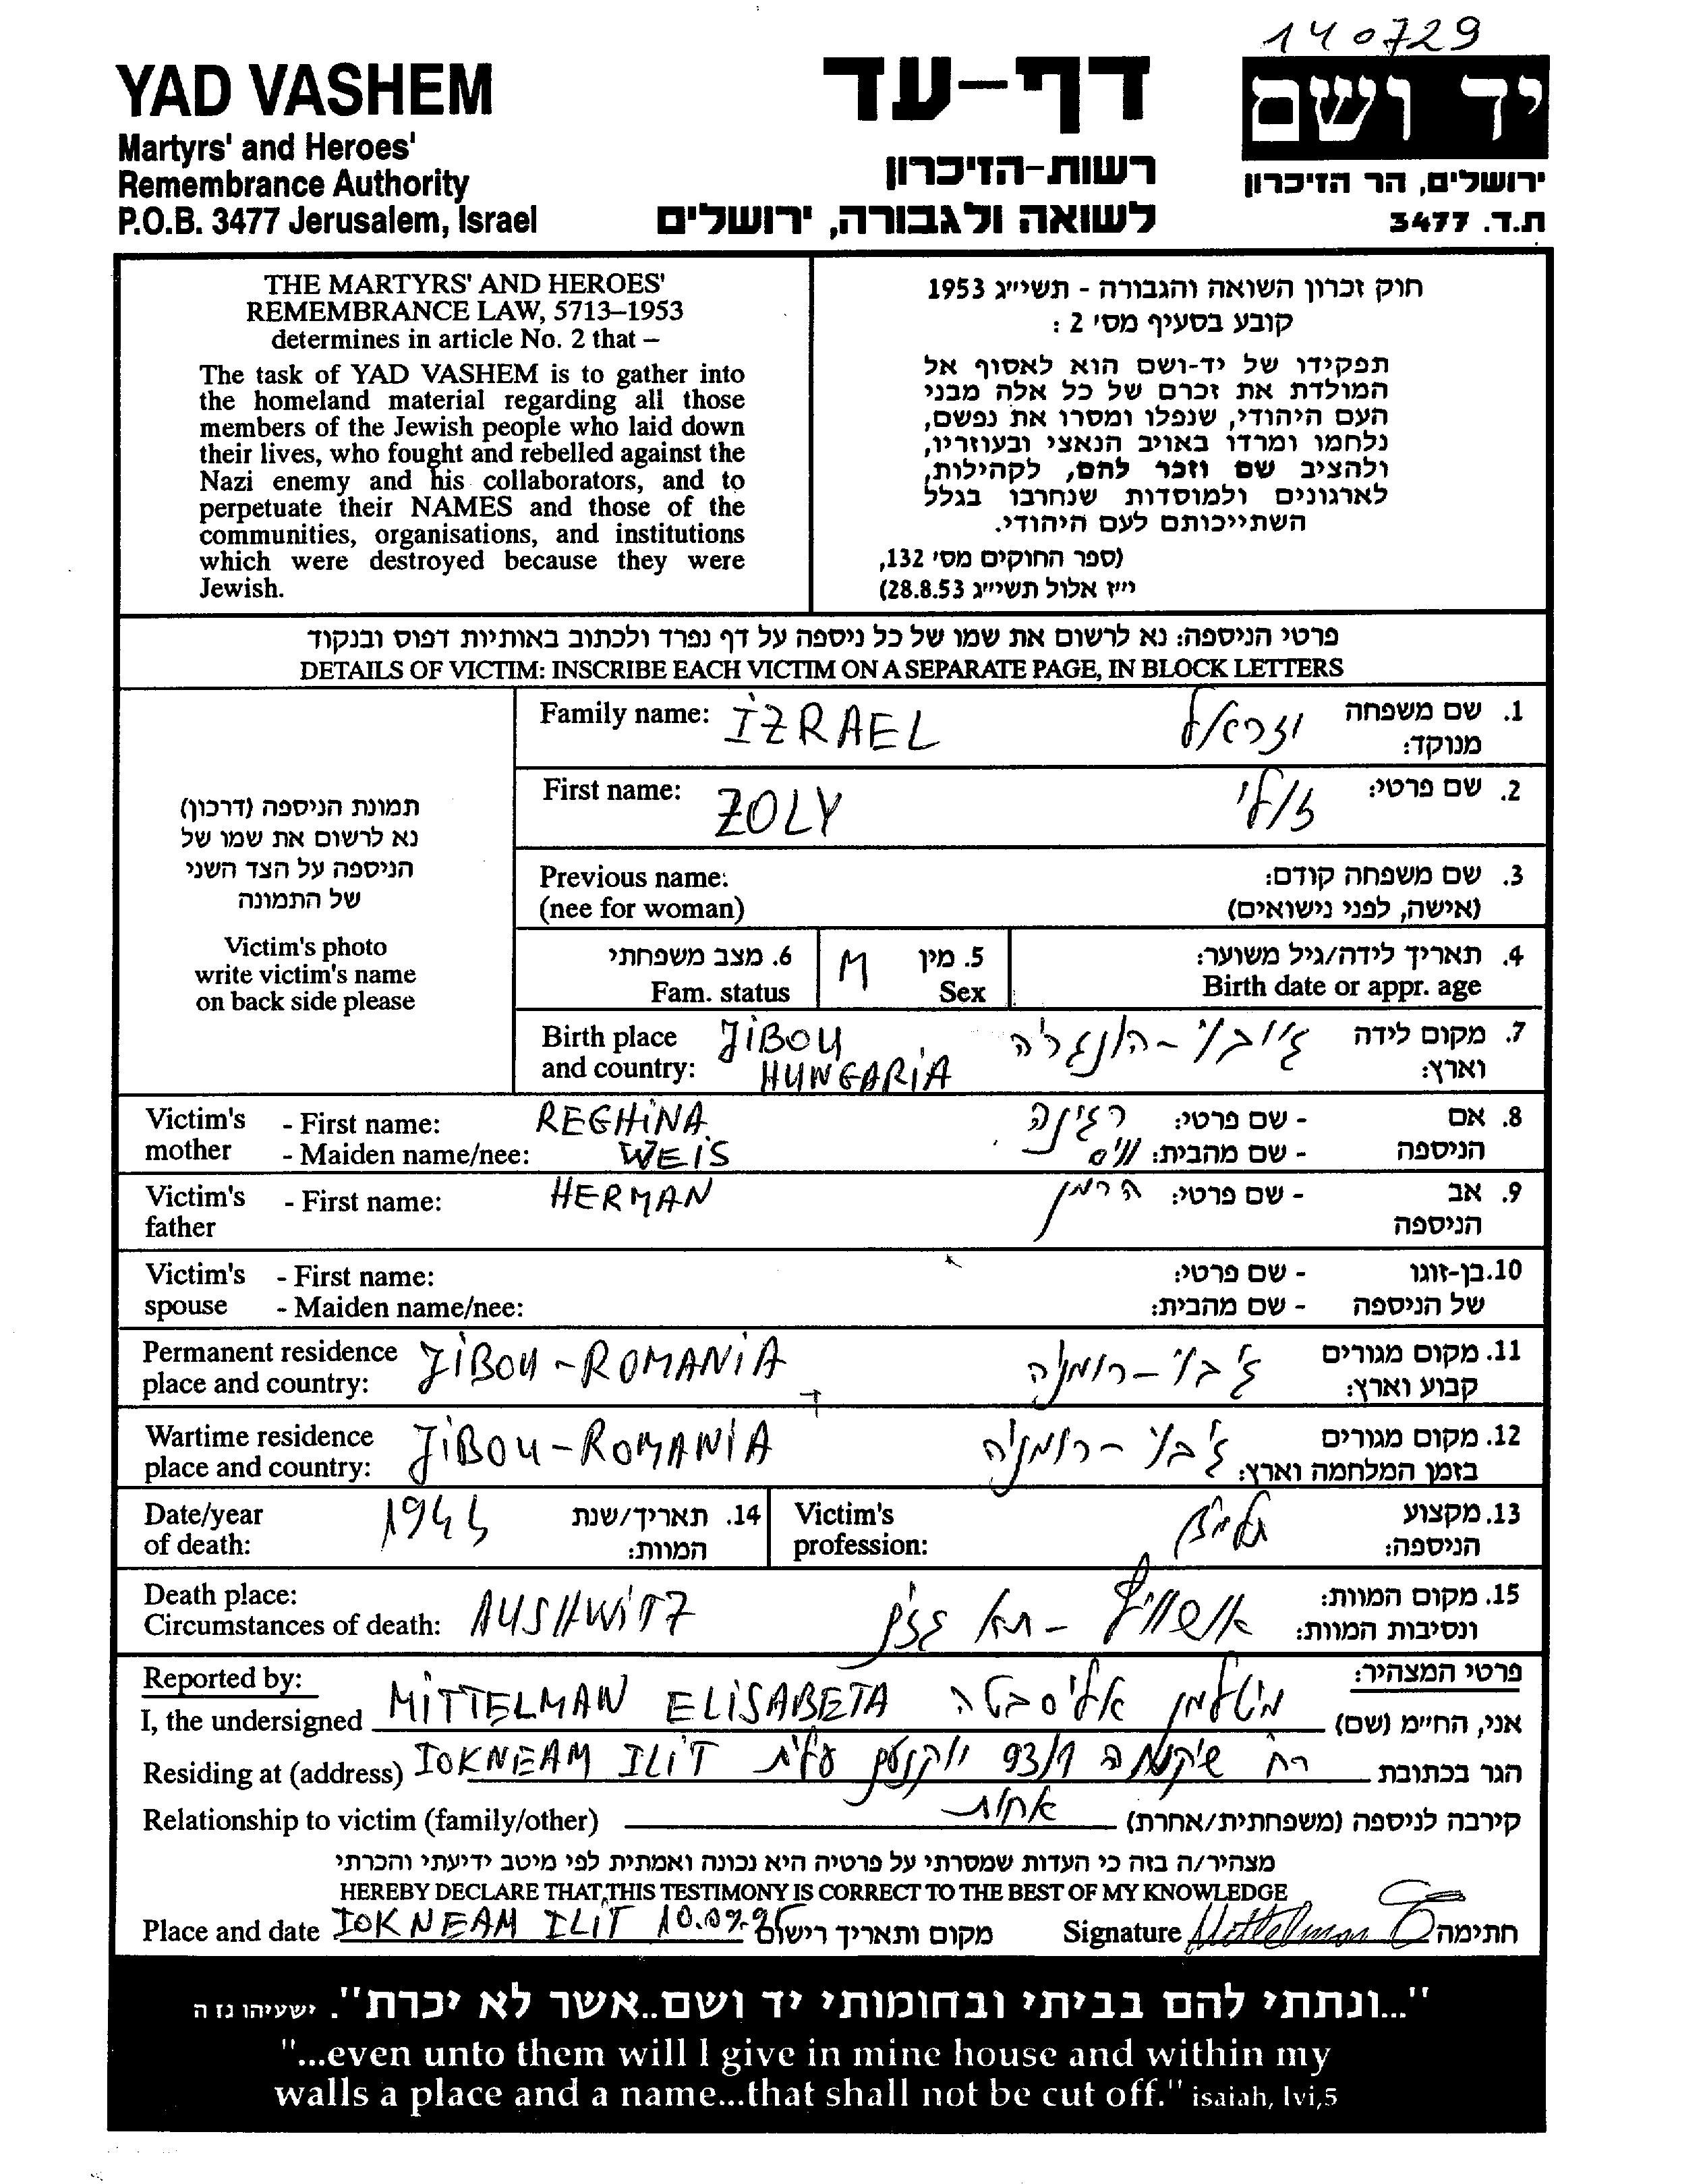 140729
YAD VASHEM
Martyrs' and Heroes'
Remembrance Authority
P.O.B. 3477 Jerusalem, Israel
דף-עד
רשות-הזיכרון
לשואה ולגבורה, ירושלים
יד ושם
ירושלים, הר הזיכרון
ת.ד. 3477
THE MARTYRS' AND HEROES'
REMEMBRANCE LAW, 5713–1953
determines in article No. 2 that –
The task of YAD VASHEM is to gather into
the homeland material regarding all those
members of the Jewish people who laid down
their lives, who fought and rebelled against the
Nazi enemy and his collaborators, and to
perpetuate their NAMES and those of the
communities, organisations, and institutions
which were destroyed because they were
Jewish.
חוק זכרון השואה והגבורה - תשי״ג 1953
קובע בסעיף מס׳ 2 :
תפקידו של יד-ושם הוא לאסוף אל
המולדת את זכרם של כל אלה מבני
העם היהודי, שנפלו ומסרו את נפשם,
נלחמו ומרדו באויב הנאצי ובעוזריו,
ולהציב שם וזכר להם, לקהילות,
לארגונים ולמוסדות שנחרבו בגלל
השתייכותם לעם היהודי.
(ספר החוקים מס׳ 132,
י״ז אלול תשי״ג 28.8.53)
פרטי הניספה: נא לרשום את שמו של כל ניספה על דף נפרד ולכתוב באותיות דפוס ובנקוד
DETAILS OF VICTIM: INSCRIBE EACH VICTIM ON A SEPARATE PAGE, IN BLOCK LETTERS
תמונת הניספה (דרכון)
נא לרשום את שמו של
הניספה על הצד השני
של התמונה
Victim's photo
write victim's name
on back side please
Family name: IZRAEL יזראל 1. שם משפחה
מנוקד:
First name: ZOLY זולי 2. שם פרטי:
Previous name: 3. שם משפחה קודם:
(nee for woman) (אישה, לפני נישואים)
6. מצב משפחתי M 5. מין 4. תאריך לידה/גיל משוער:
Fam. status Sex Birth date or appr. age
Birth place JIBOU 7. מקום לידה
and country: HUNGARIA וארץ:
Victim's - First name: REGHINA רגינה - שם פרטי: 8. אם
mother - Maiden name/nee: WEIS וייס - שם מהבית: הניספה
Victim's - First name: HERMAN הרמן - שם פרטי: 9. אב
father הניספה
Victim's - First name: - שם פרטי: 10. בן-זוגו
spouse - Maiden name/nee: - שם מהבית: של הניספה
Permanent residence JIBOU - ROMANIA ז׳בוי - רומניה 11. מקום מגורים
place and country: קבוע וארץ:
Wartime residence JIBOU - ROMANIA ז׳בוי - רומניה 12. מקום מגורים
place and country: בזמן המלחמה וארץ:
Date/year 1944 14. תאריך/שנת Victim's תלמיד 13. מקצוע
of death: המוות: profession: הניספה:
Death place: 15. מקום המוות:
Circumstances of death: AUSHWITZ אושוויץ - תא גזים ונסיבות המוות:
Reported by: פרטי המצהיר:
I, the undersigned MITTELMAN ELISABETA מיטלמן אליסבטה אני, החי״מ (שם)
Residing at (address) IOKNEAM ILIT רח׳ שיקמה 93/1 יוקנעם עלית הגר בכתובת
Relationship to victim (family/other) אחות קירבה לניספה (משפחתית/אחרת)
מצהיר/ה בזה כי העדות שמסרתי על פרטיה היא נכונה ואמתית לפי מיטב ידיעתי והכרתי
HEREBY DECLARE THAT THIS TESTIMONY IS CORRECT TO THE BEST OF MY KNOWLEDGE
Place and date IOKNEAM ILIT מקום ותאריך רישום Signature Mittelman חתימה
"...ונתתי להם בביתי ובחומותי יד ושם..אשר לא יכרת". ישעיהו נז ה
"...even unto them will I give in mine house and within my
walls a place and a name...that shall not be cut off." isaiah, lvi,5